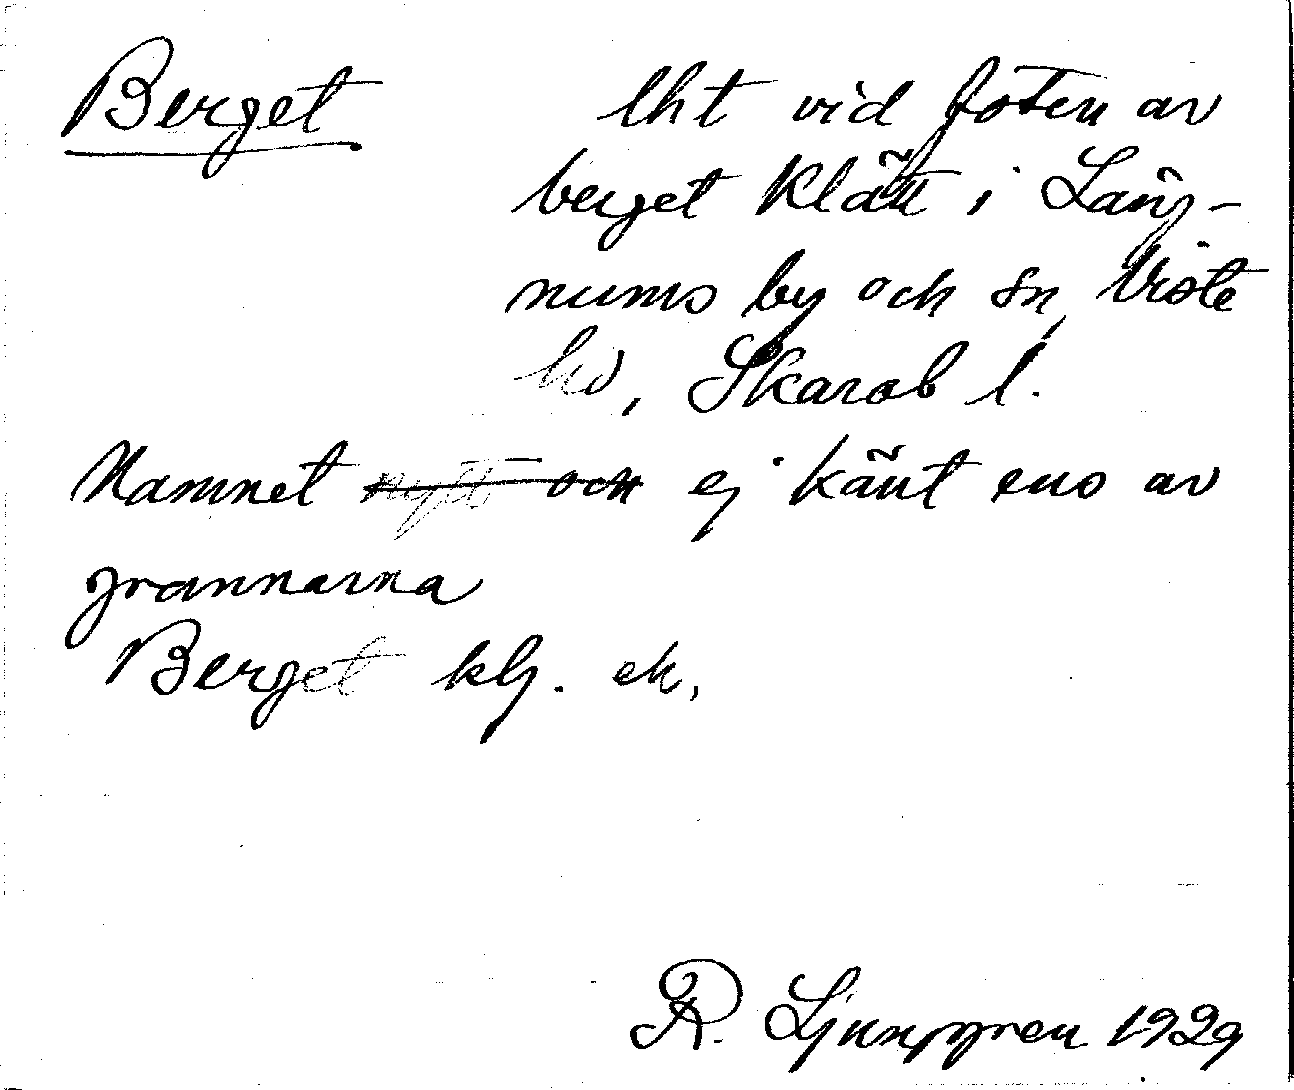 Berget lht vid foten av
berget Klätt i Läng-
nums by och sn, Viste
hd, Skarab l.
Namnet nytt och ej känt ens av
grannarna
Berget klj. ek,
R. Ljunggren 1929